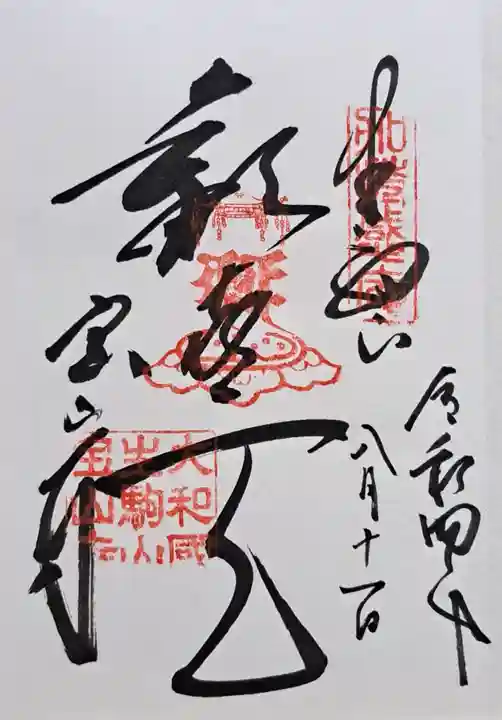 令和四年
八月十一日
生駒山
歓喜天
宝山寺
大和國
生駒山
宝山寺